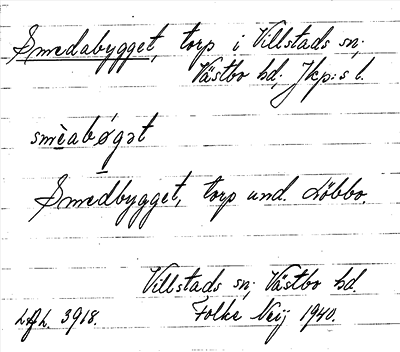 Smedabygget, torp i Villstads sn;
Västbo hd; Jkp:s l.
smèabǿgət
Smedbygget, torp und. Löbbo.
Villstads sn; Västbo hd.
Lgh. 3918. Folke Neij 1940.